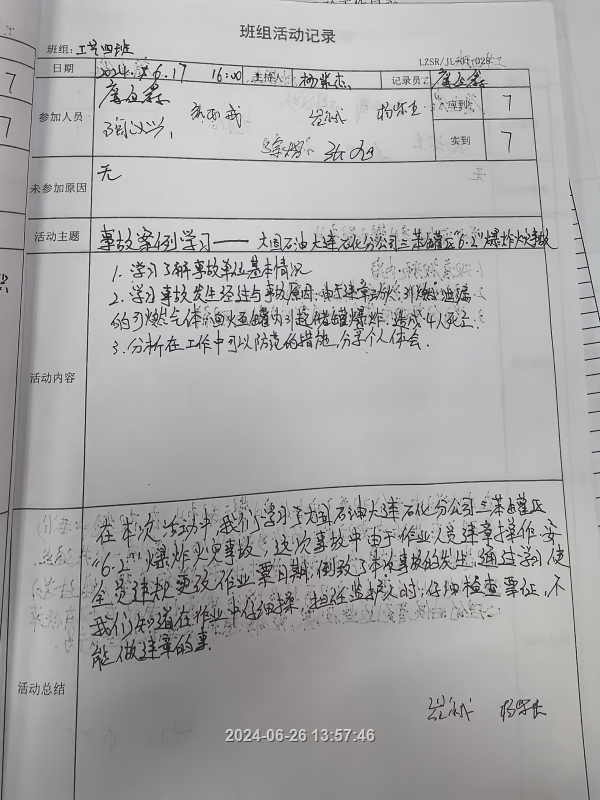 班组活动记录
班组: 工艺四班
LZSR/JL
日期 2024.6.17 16:00 主持人 记录员
参加人员 应到 7
实到 7
未参加原因 无
活动主题 事故案例学习—— 大国石油大连石化分公司三苯罐区"6.2"爆炸火灾事故
1. 学习了解事故单位基本情况
2. 学习事故发生经过与事故原因: 由于违章动火, 引燃泄漏
的可燃气体, 回火至罐内引起储罐爆炸. 造成4人死亡.
3. 分析在工作中可以防范的措施, 分享个人体会.
活动内容
在本次活动中, 我们学习了大国石油大连石化分公司三苯罐区
"6.2"爆炸火灾事故, 这次事故中由于作业人员违章操作, 安
全员违规更改作业票日期, 倒致了本次事故的发生, 通过学习使
我们知道在作业中仔细操, 担任监护人时, 仔细检查票证, 不
能做违章的事.
活动总结
2024-06-26 13:57:46